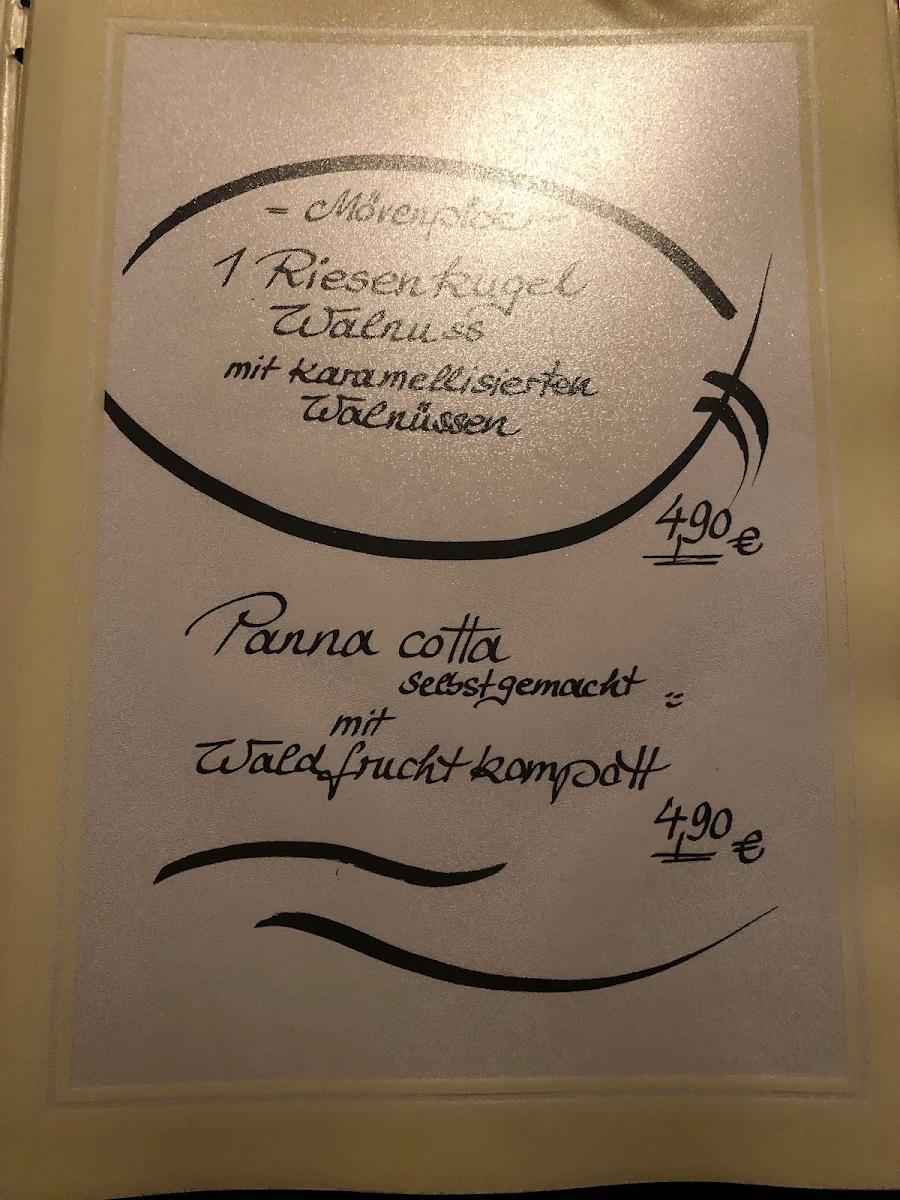 = Mövenpick =
1 Riesenkugel
Walnuss
mit karamellisierten
Walnüssen
4,90 €
Panna cotta
selbstgemacht =
mit
Waldfruchtkompott
4,90 €